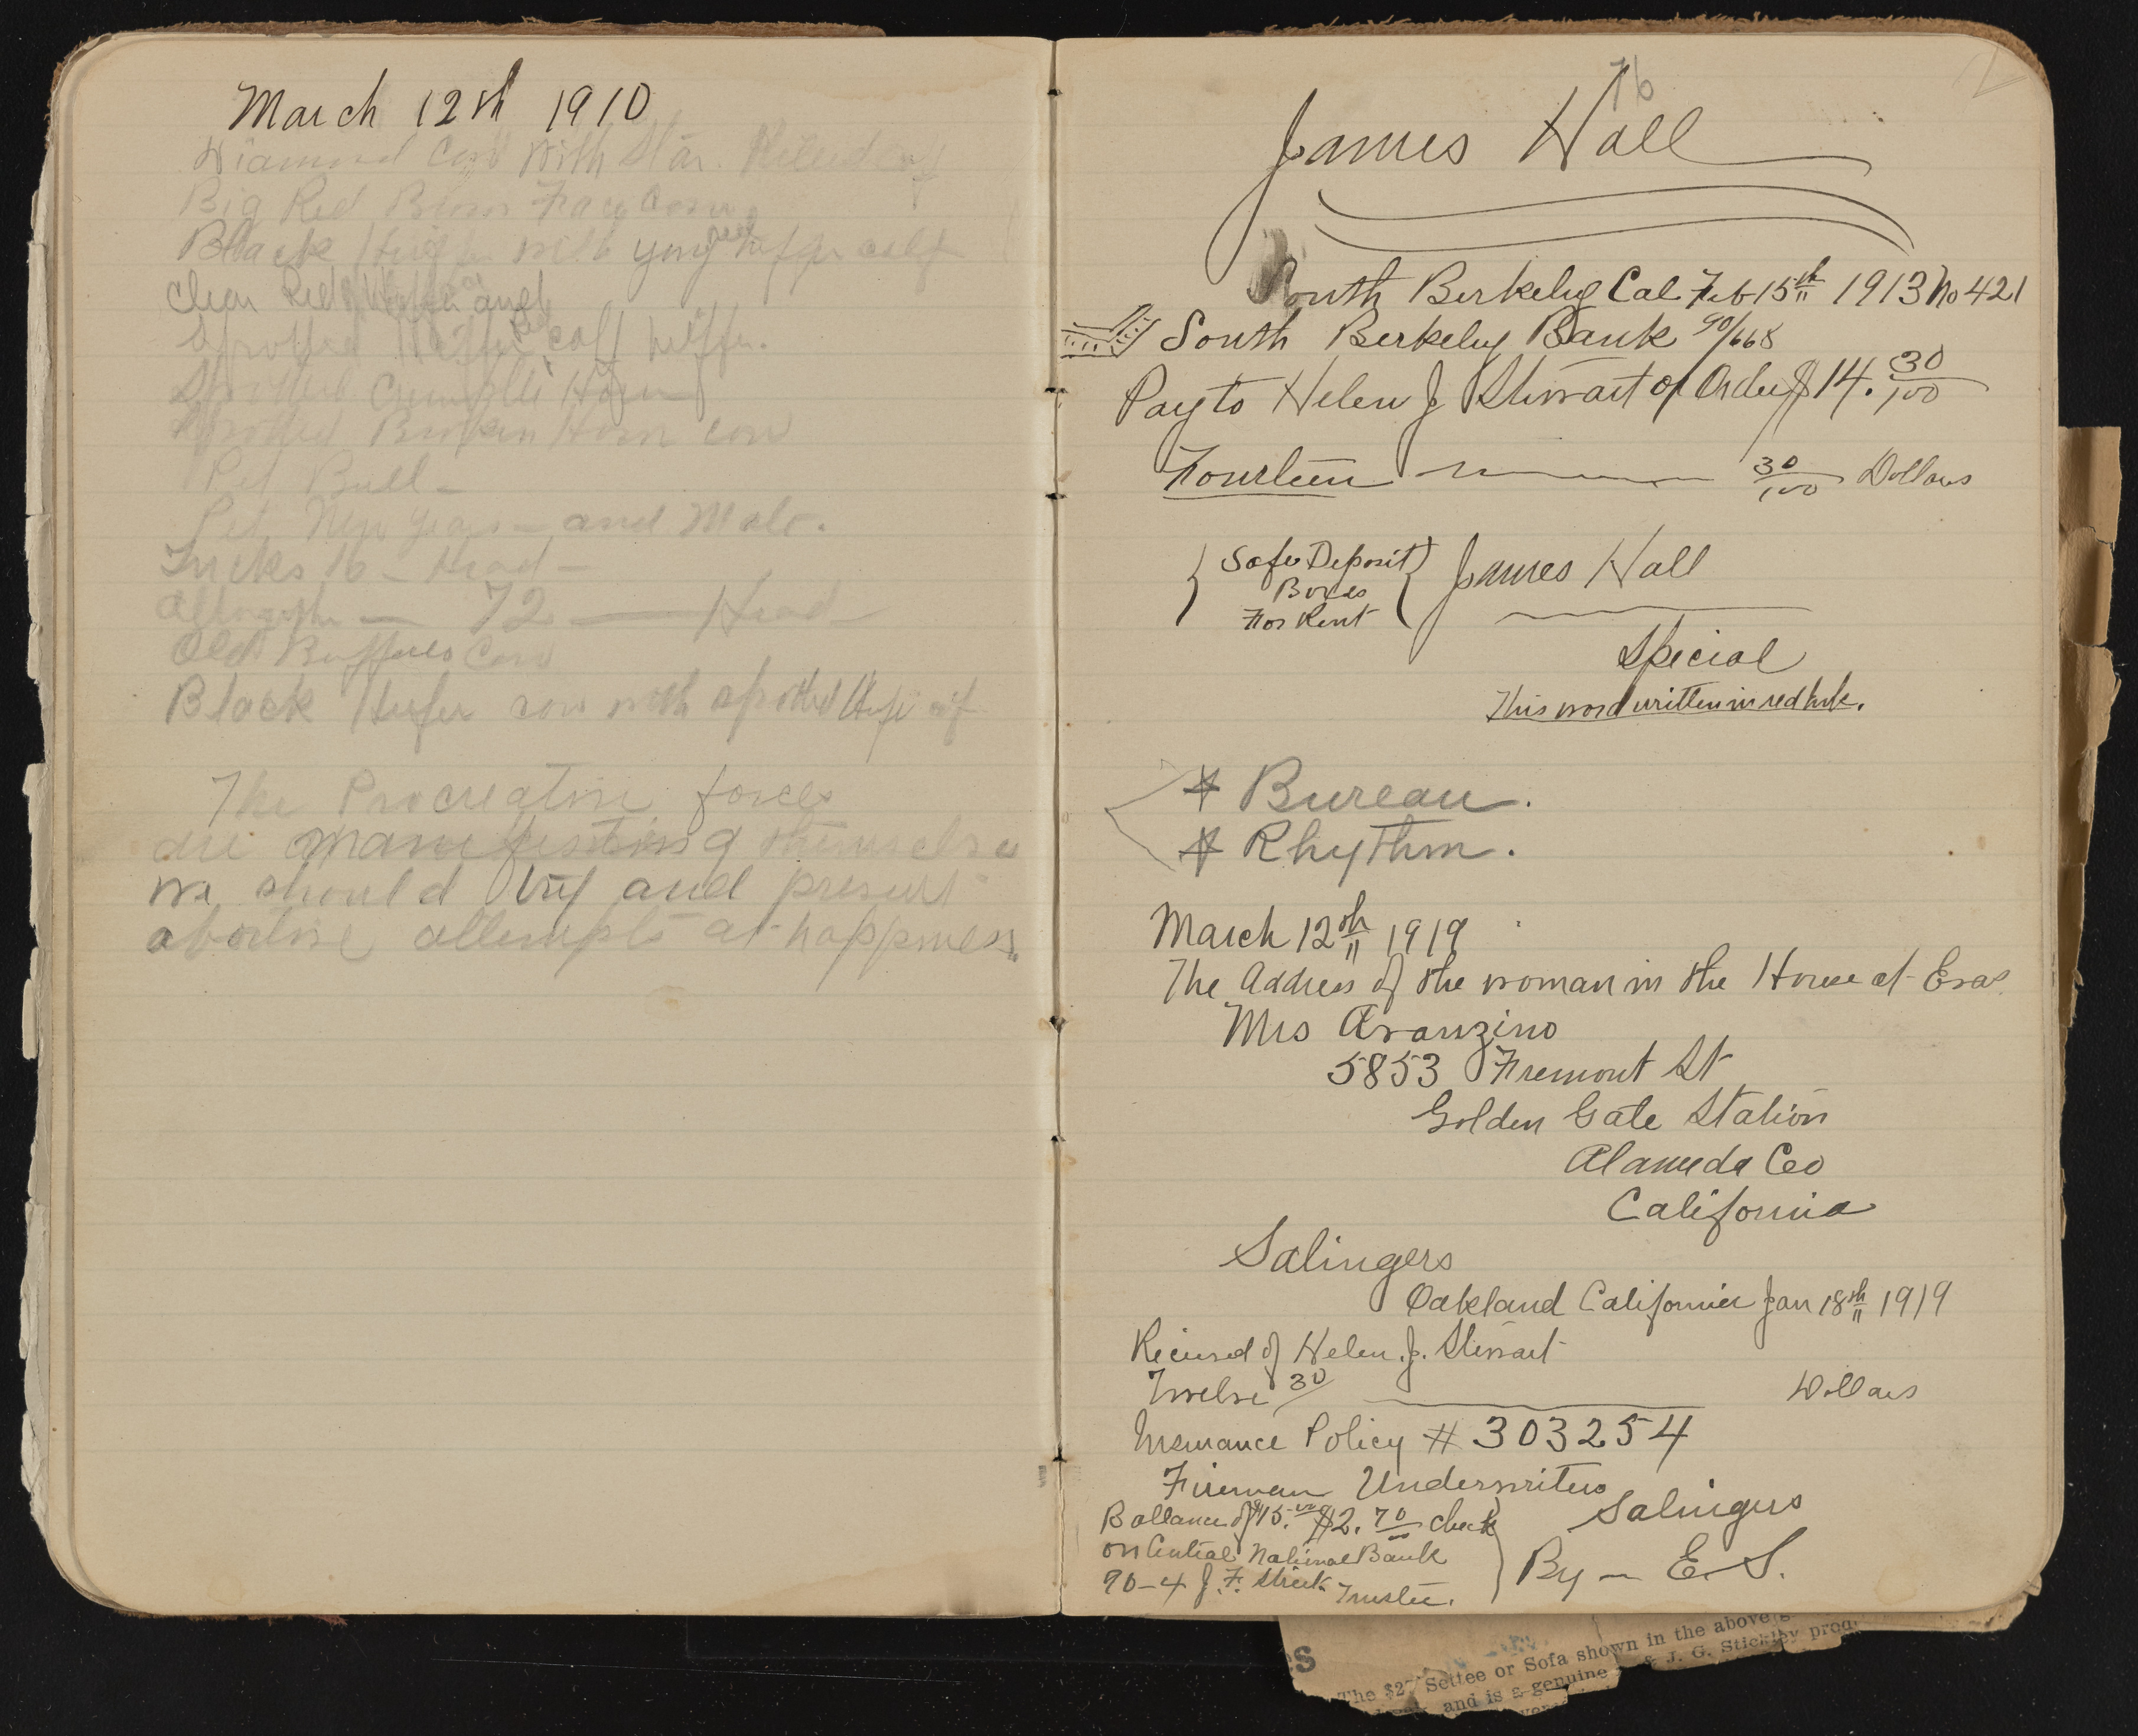 March 12th 1910
Diamond Cow with Star.
Big Red Brown Face Cow
Black Heiffer with young red heffer calf
Clear Red Heffer and
Spotted Heiffer Red calf heiffer.
Spotted Crumplle Horn
Spotted Broken Horn cow
Pet Bull -
Pet New Years - and Male.
Tricks 16 - Head -
Altogether — 72 — Head -
Old Buffalo Cow
Black Heifer cow with spotted
The Procreative forces
are manifesting themselves
we should try and present
abortive attempts at happiness.
76
James Hall
South Berkeley Cal Feb 15th 1913 No 421
South Berkeley Bank 90/668
Pay to Helen J Stewart or Order $14.30/100
Fourteen 30/100 Dollars
Safe Deposit
Boxes
For Rent
James Hall
Special
This word written in red Ink.
* Bureau.
* Rhythm.
March 12th 1919
The Address of the woman in the House at Evas
Mrs Avanzino
5853 Fremont St
Golden Gate Station
Alameda Co
California
Salingers
Oakland California Jan 18th 1919
Recieved of Helen. J. Stewart
Twelve 30/ Dollars
Insurance Policy # 303254
Fireman Underwriters
Ballance of $15.00 $2.70 check
on Central National Bank
90-4 J. F. Trustee.
Salingers
By — E. S.
The $27 Settee or Sofa shown in the above
and is a genuine & J. G. Stickley